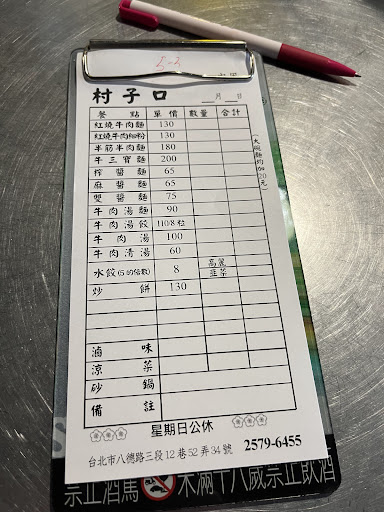 5-3
村子口
__月__日
餐點 單價 數量 合計
紅燒牛肉麵 130
紅燒牛肉細粉 130
半筋半肉麵 180
牛三寶麵 200
炸醬麵 65
麻醬麵 65
雙醬麵 75
牛肉湯麵 90
牛肉湯餃 110/8粒
牛肉湯 100
牛肉清湯 60
水餃(5的倍數) 8 高麗
韭菜
炒餅 130
(大碗麵均加20元)
滷味
涼菜
砂鍋
備註
星期日公休
台北市八德路三段12巷52弄34號 2579-6455
禁止酒駕 未滿十八歲禁止飲酒